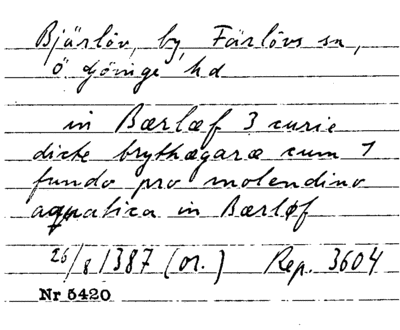 Bjärlöv, by, Färlövs sn,
Ö Göinge hd
in Bærlæf 3 curie
dicte brythægaræ cum 1
fundo pro molendino
aquatica in Bærløf
26/8 1387 (or.) Rep. 3604
Nr 5420